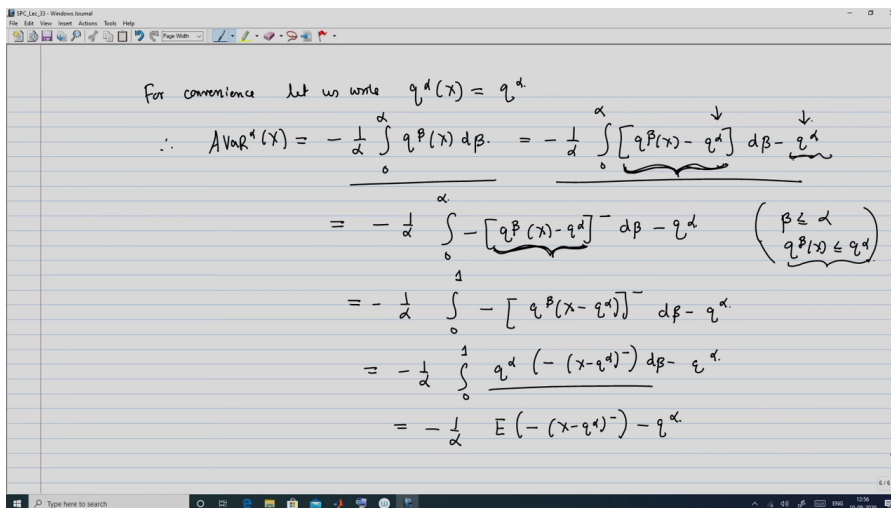 SPC_Lec_33 - Windows Journal
File Edit View Insert Actions Tools Help
Page Width
For convenience let us write q^α(X) = q^α.
∴ AVaR^α(X) = - 1/α ∫_0^α q^β(X) dβ. = - 1/α ∫_0^α [q^β(X) - q^α] dβ - q^α
= - 1/α ∫_0^α - [q^β(X) - q^α]^- dβ - q^α (β ≤ α
q^β(X) ≤ q^α)
= - 1/α ∫_0^1 - [q^β(X - q^α)]^- dβ - q^α.
= - 1/α ∫_0^1 q^α (-(X - q^α)^-) dβ - q^α.
= - 1/α E(-(X - q^α)^-) - q^α.
6/6
Type here to search
ENG
12:56